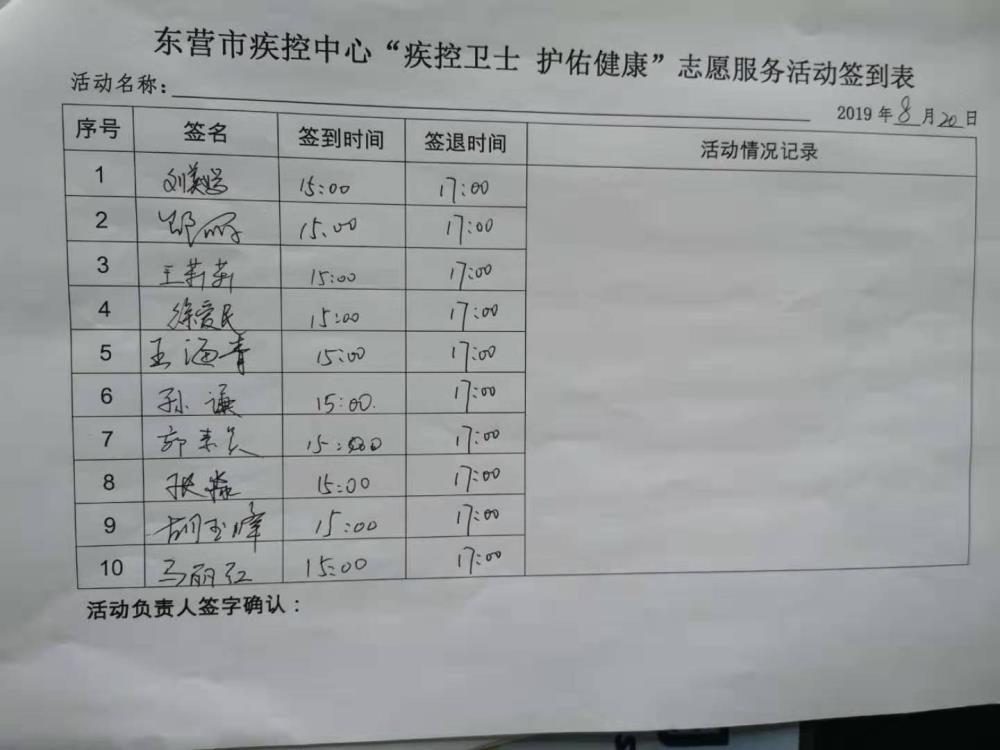 东营市疾控中心“疾控卫士 护佑健康”志愿服务活动签到表
活动名称：
2019 年 8 月 20 日
序号 签名 签到时间 签退时间 活动情况记录
1 15:00 17:00
2 郑丽 15:00 17:00
3 王莉莉 15:00 17:00
4 徐爱民 15:00 17:00
5 王海青 15:00 17:00
6 孙谦 15:00. 17:00
7 15:00 17:00
8 张淼 15:00 17:00
9 胡玉峰 15:00 17:00
10 马丽红 15:00 17:00
活动负责人签字确认：